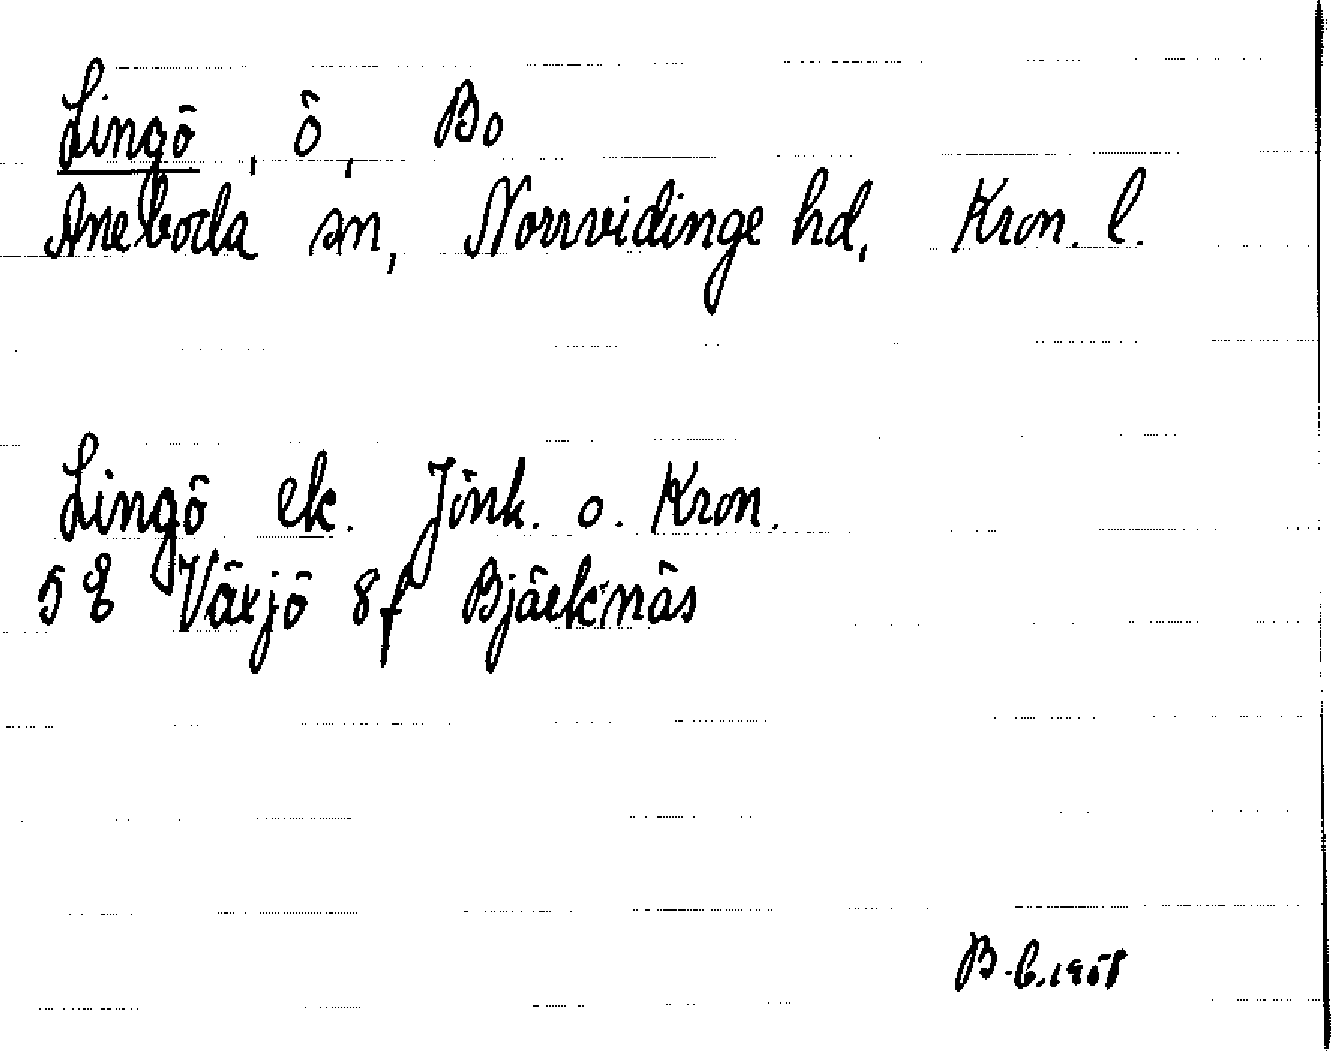 Lingö, ö, Bo
Aneboda sn, Norrvidinge hd, Kron. l.
Lingö ek. Jönk. o. Kron.
5 E Växjö 8f Bjärknäs
B-b.1958